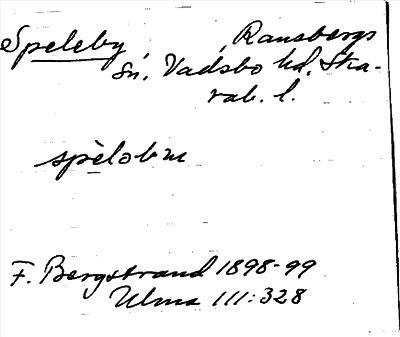 Speleby Ransbergs
sn. Vadsbo hd. Ska-
rab. l.
spèlobm
F. Bergstrand 1898-99
Ulma 111:328